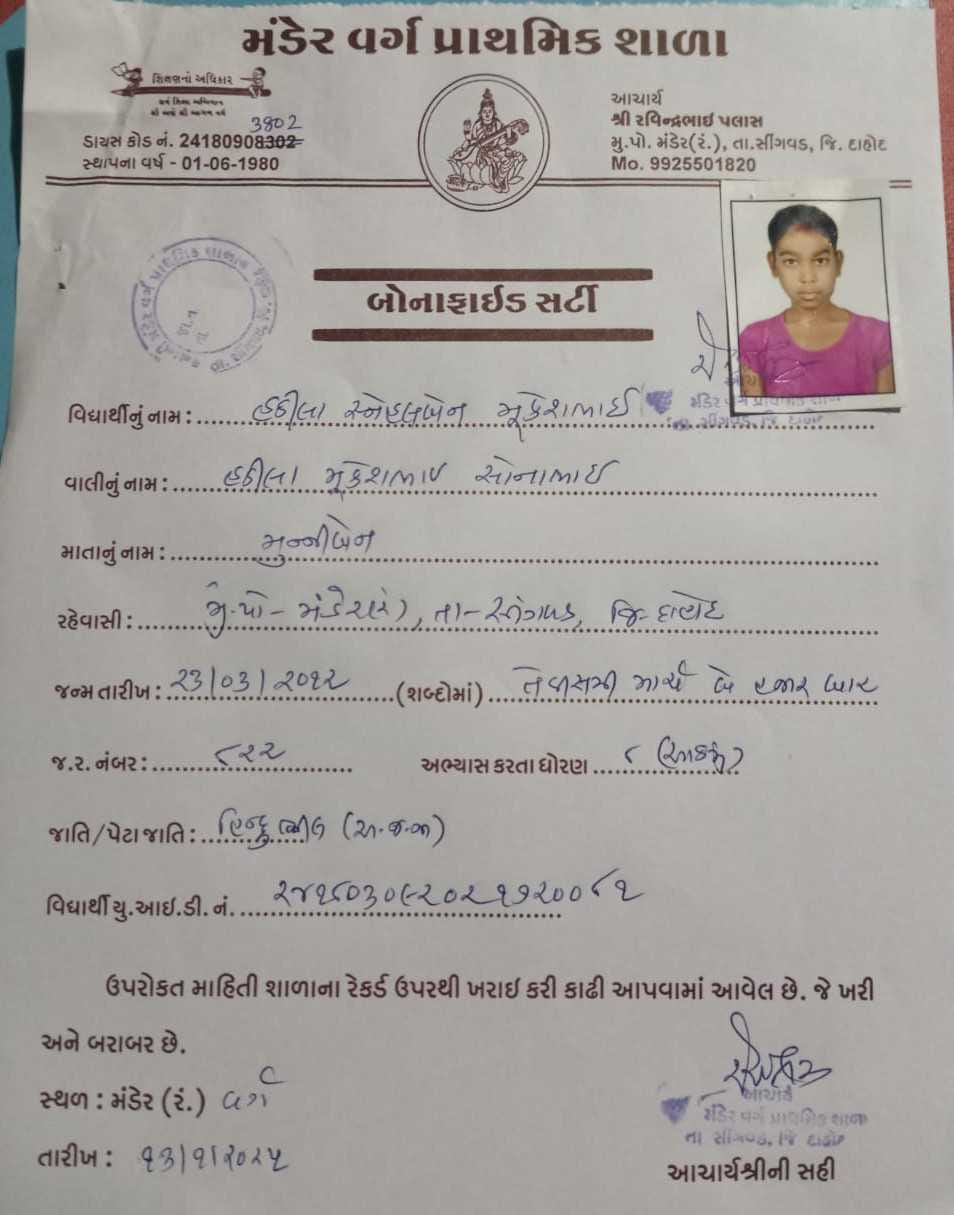 મંડેર વર્ગ પ્રાથમિક શાળા
શિક્ષણનો અધિકાર
સર્વ શિક્ષા અભિયાન
3802
ડાયસ કોડ નં. 24180908302
સ્થાપના વર્ષ - 01-06-1980
આચાર્ય
શ્રી રવિન્દ્રભાઇ પલાસ
મુ.પો. મંડેર(રં.), તા.સીંગવડ, જિ. દાહોદ
Mo. 9925501820
બોનાફાઈડ સર્ટી
વિદ્યાર્થીનું નામ : હઠીલા સ્નેહલબેન મૂકેશભાઈ
વાલીનું નામ : હઠીલા મૂકેશભાઈ સોનાભાઈ
માતાનું નામ : મુન્નીબેન
રહેવાસી : મુ.પો - મંડેર(રં), તા - સીંગવડ, જિ - દાહોદ
જન્મ તારીખ : ૨૩/૦૩/૨૦૧૨ (શબ્દોમાં) તેવીસમી માર્ચ બે હજાર બાર
જ.ર. નંબર : ૮૨૨ અભ્યાસ કરતા ધોરણ ૮ (આઠમું)
જાતિ/પેટા જાતિ : હિન્દુ ભીલ (અ.જ.જા)
વિદ્યાર્થી યુ.આઈ.ડી. નં.
ઉપરોક્ત માહિતી શાળાના રેકર્ડ ઉપરથી ખરાઇ કરી કાઢી આપવામાં આવેલ છે. જે ખરી
અને બરાબર છે.
સ્થળ : મંડેર (રં.) વર્ગ
તારીખ : ૧૩/૧/૨૦૨૫
આચાર્ય
મંડેર વર્ગ પ્રાથમિક શાળા
તા સીંગવડ, જિ દાહોદ
આચાર્યશ્રીની સહી